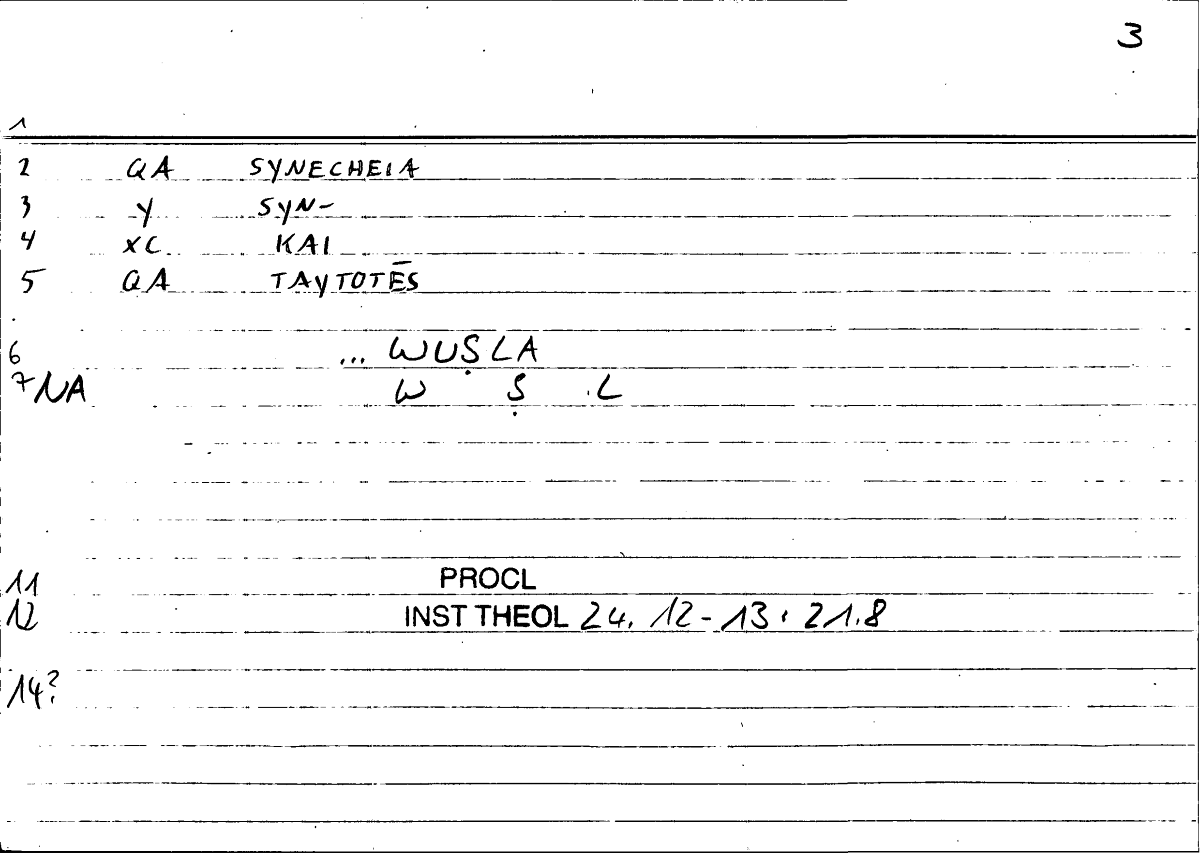 3
1
2 QA SYNECHEIA
3 Y SYN-
4 XC KAI
5 QA TAYTOTĒS
6 ... WUṢLA
7 NA W Ṣ L
11 PROCL
12 INST THEOL 24. 12-13 : 21.8
14?